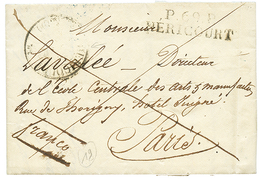 P.69.P.
HERICOURT
Monsieur
Lavalée - Directeur
de l'École Centrale des arts & manufactes
Rue de Thorigny, hôtel Juigné
Paris.
franco